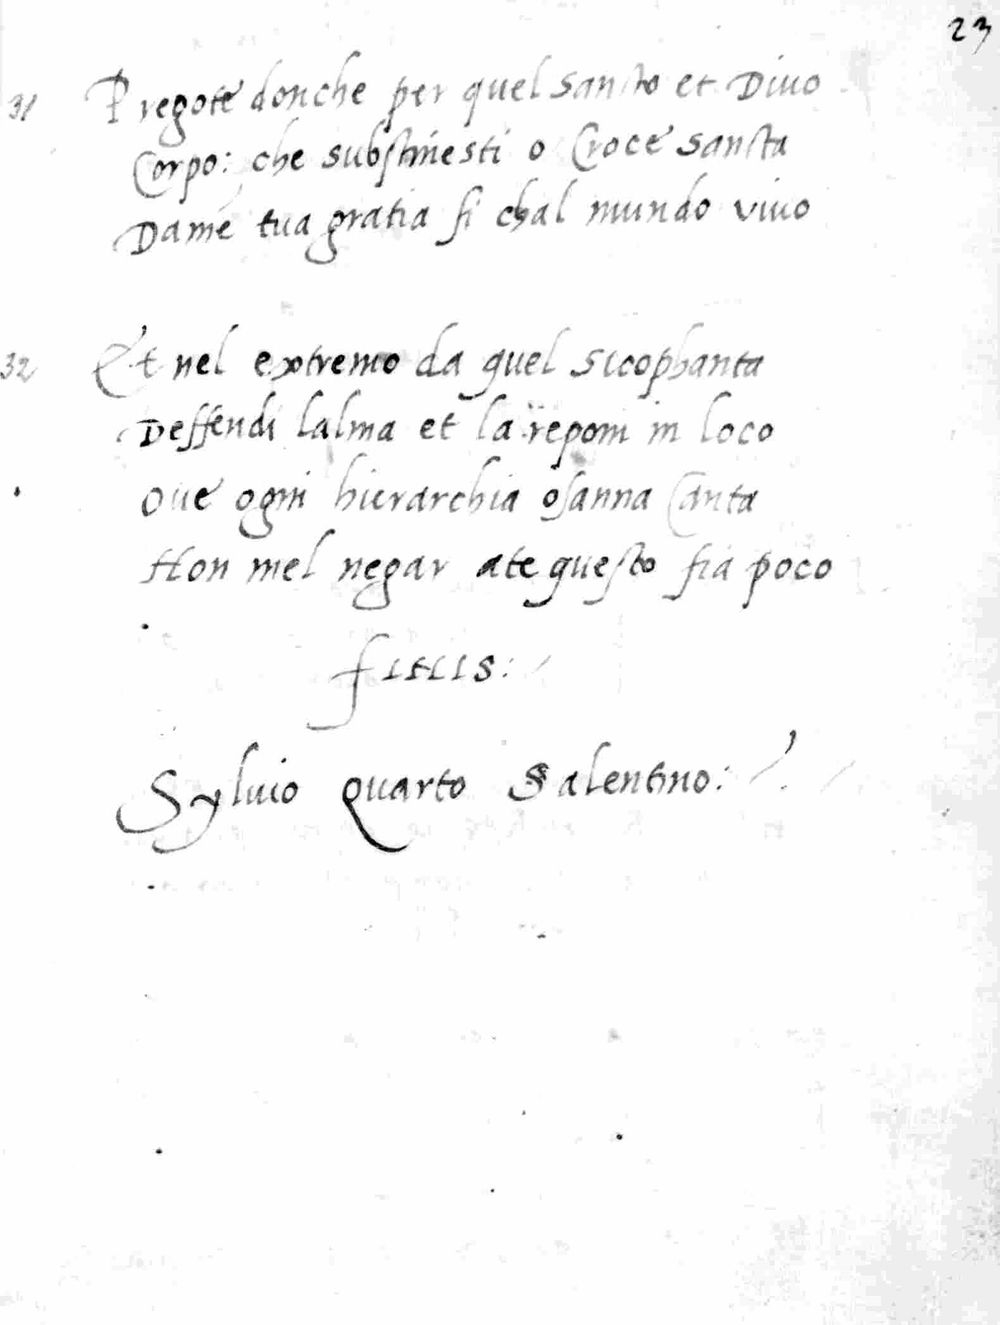 23
31 Pregote donche per quel sancto et Divo
Corpo: che substinesti o Croce sancta
Dame tua gratia si chal mundo vivo
32 Et nel extremo da quel sicophanta
Deffendi lalma et la reponi in loco
Oue ogni hierarchia osanna Canta
Non mel negar ate questo fia poco
finis:
Syluio quarto Salentino: